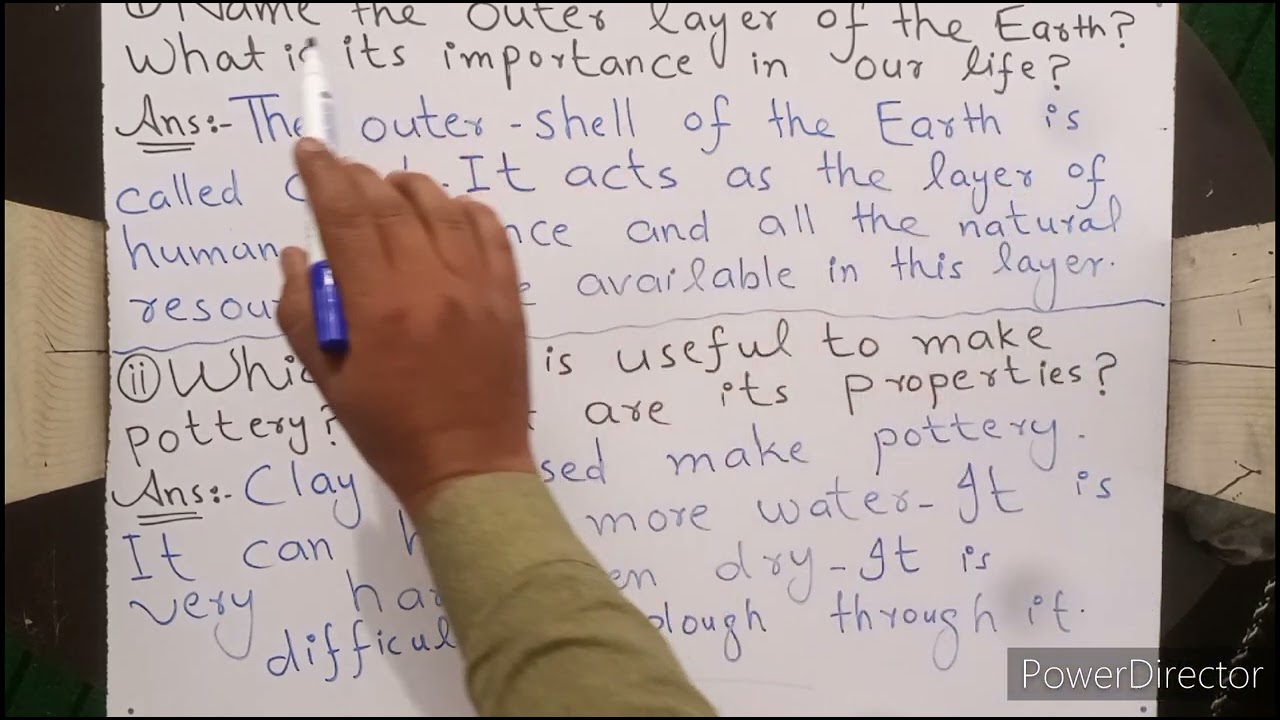 i) Name the outer layer of the Earth?
What is its importance in our life?
Ans:- The outer-shell of the Earth is
called . It acts as the layer of
human and all the natural
available in this layer.
ii) is useful to make
pottery? are its properties?
Ans:- Clay make pottery.
It can more water- It is
very dry- It is
through it.
PowerDirector